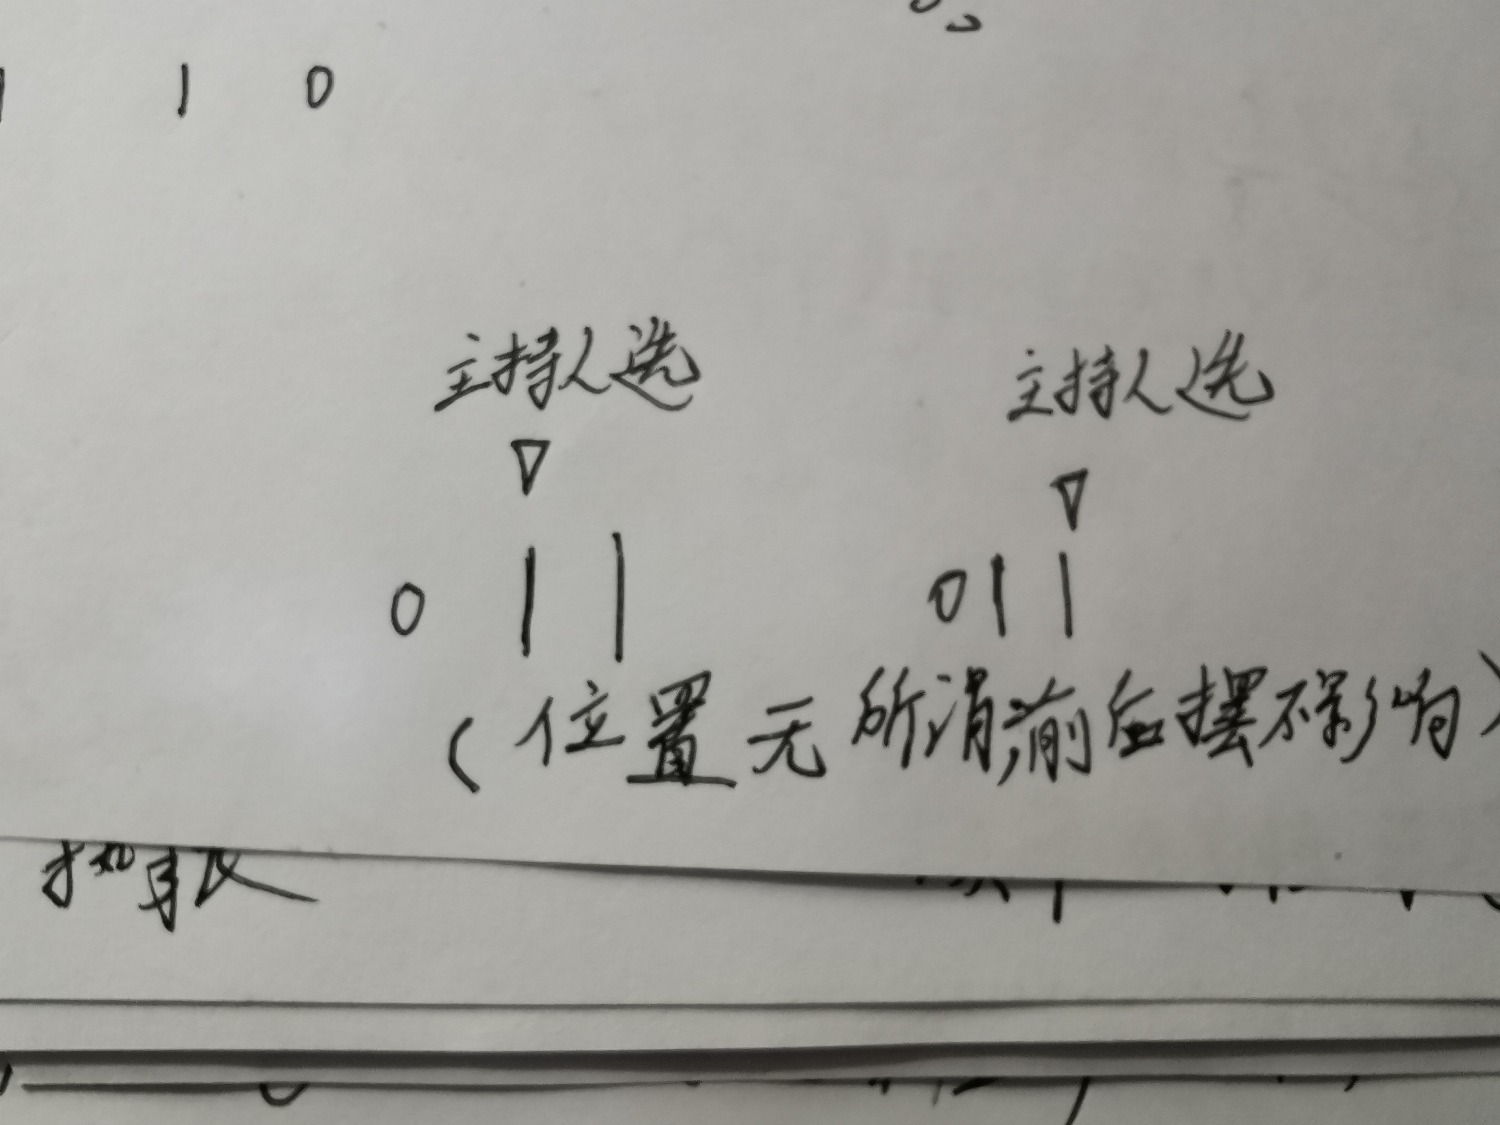 1 0
主持人选 主持人选
▽ ▽
0 1 1 0 1 1
(位置无所谓,前后摆不影响)